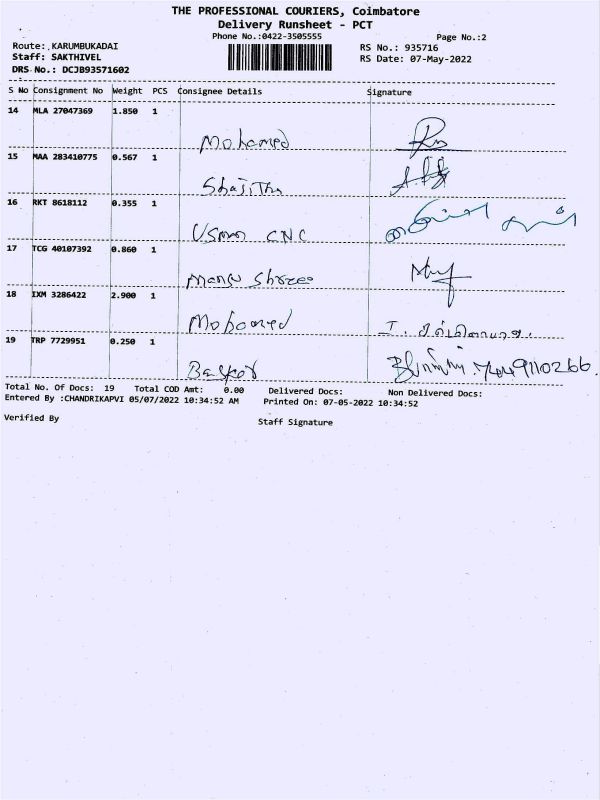 THE PROFESSIONAL COURIERS, Coimbatore
Delivery Runsheet - PCT
Phone No.:0422-3505555 Page No.:2
Route: KARUMBUKADAI RS No.: 935716
Staff: SAKTHIVEL RS Date: 07-May-2022
DRS No.: DCJB93571602
S No Consignment No Weight PCS Consignee Details Signature
14 MLA 27047369 1.850 1
Mohamed
15 MAA 283410775 0.567 1
Shajitha
16 RKT 8618112 0.355 1
Usman CNC
17 TCG 40107392 0.860 1
18 IXM 3286422 2.900 1
19 TRP 7729951 0.250 1
Total No. Of Docs: 19 Total COD Amt: 0.00 Delivered Docs: Non Delivered Docs:
Entered By :CHANDRIKAPVI 05/07/2022 10:34:52 AM Printed On: 07-05-2022 10:34:52
Verified By Staff Signature